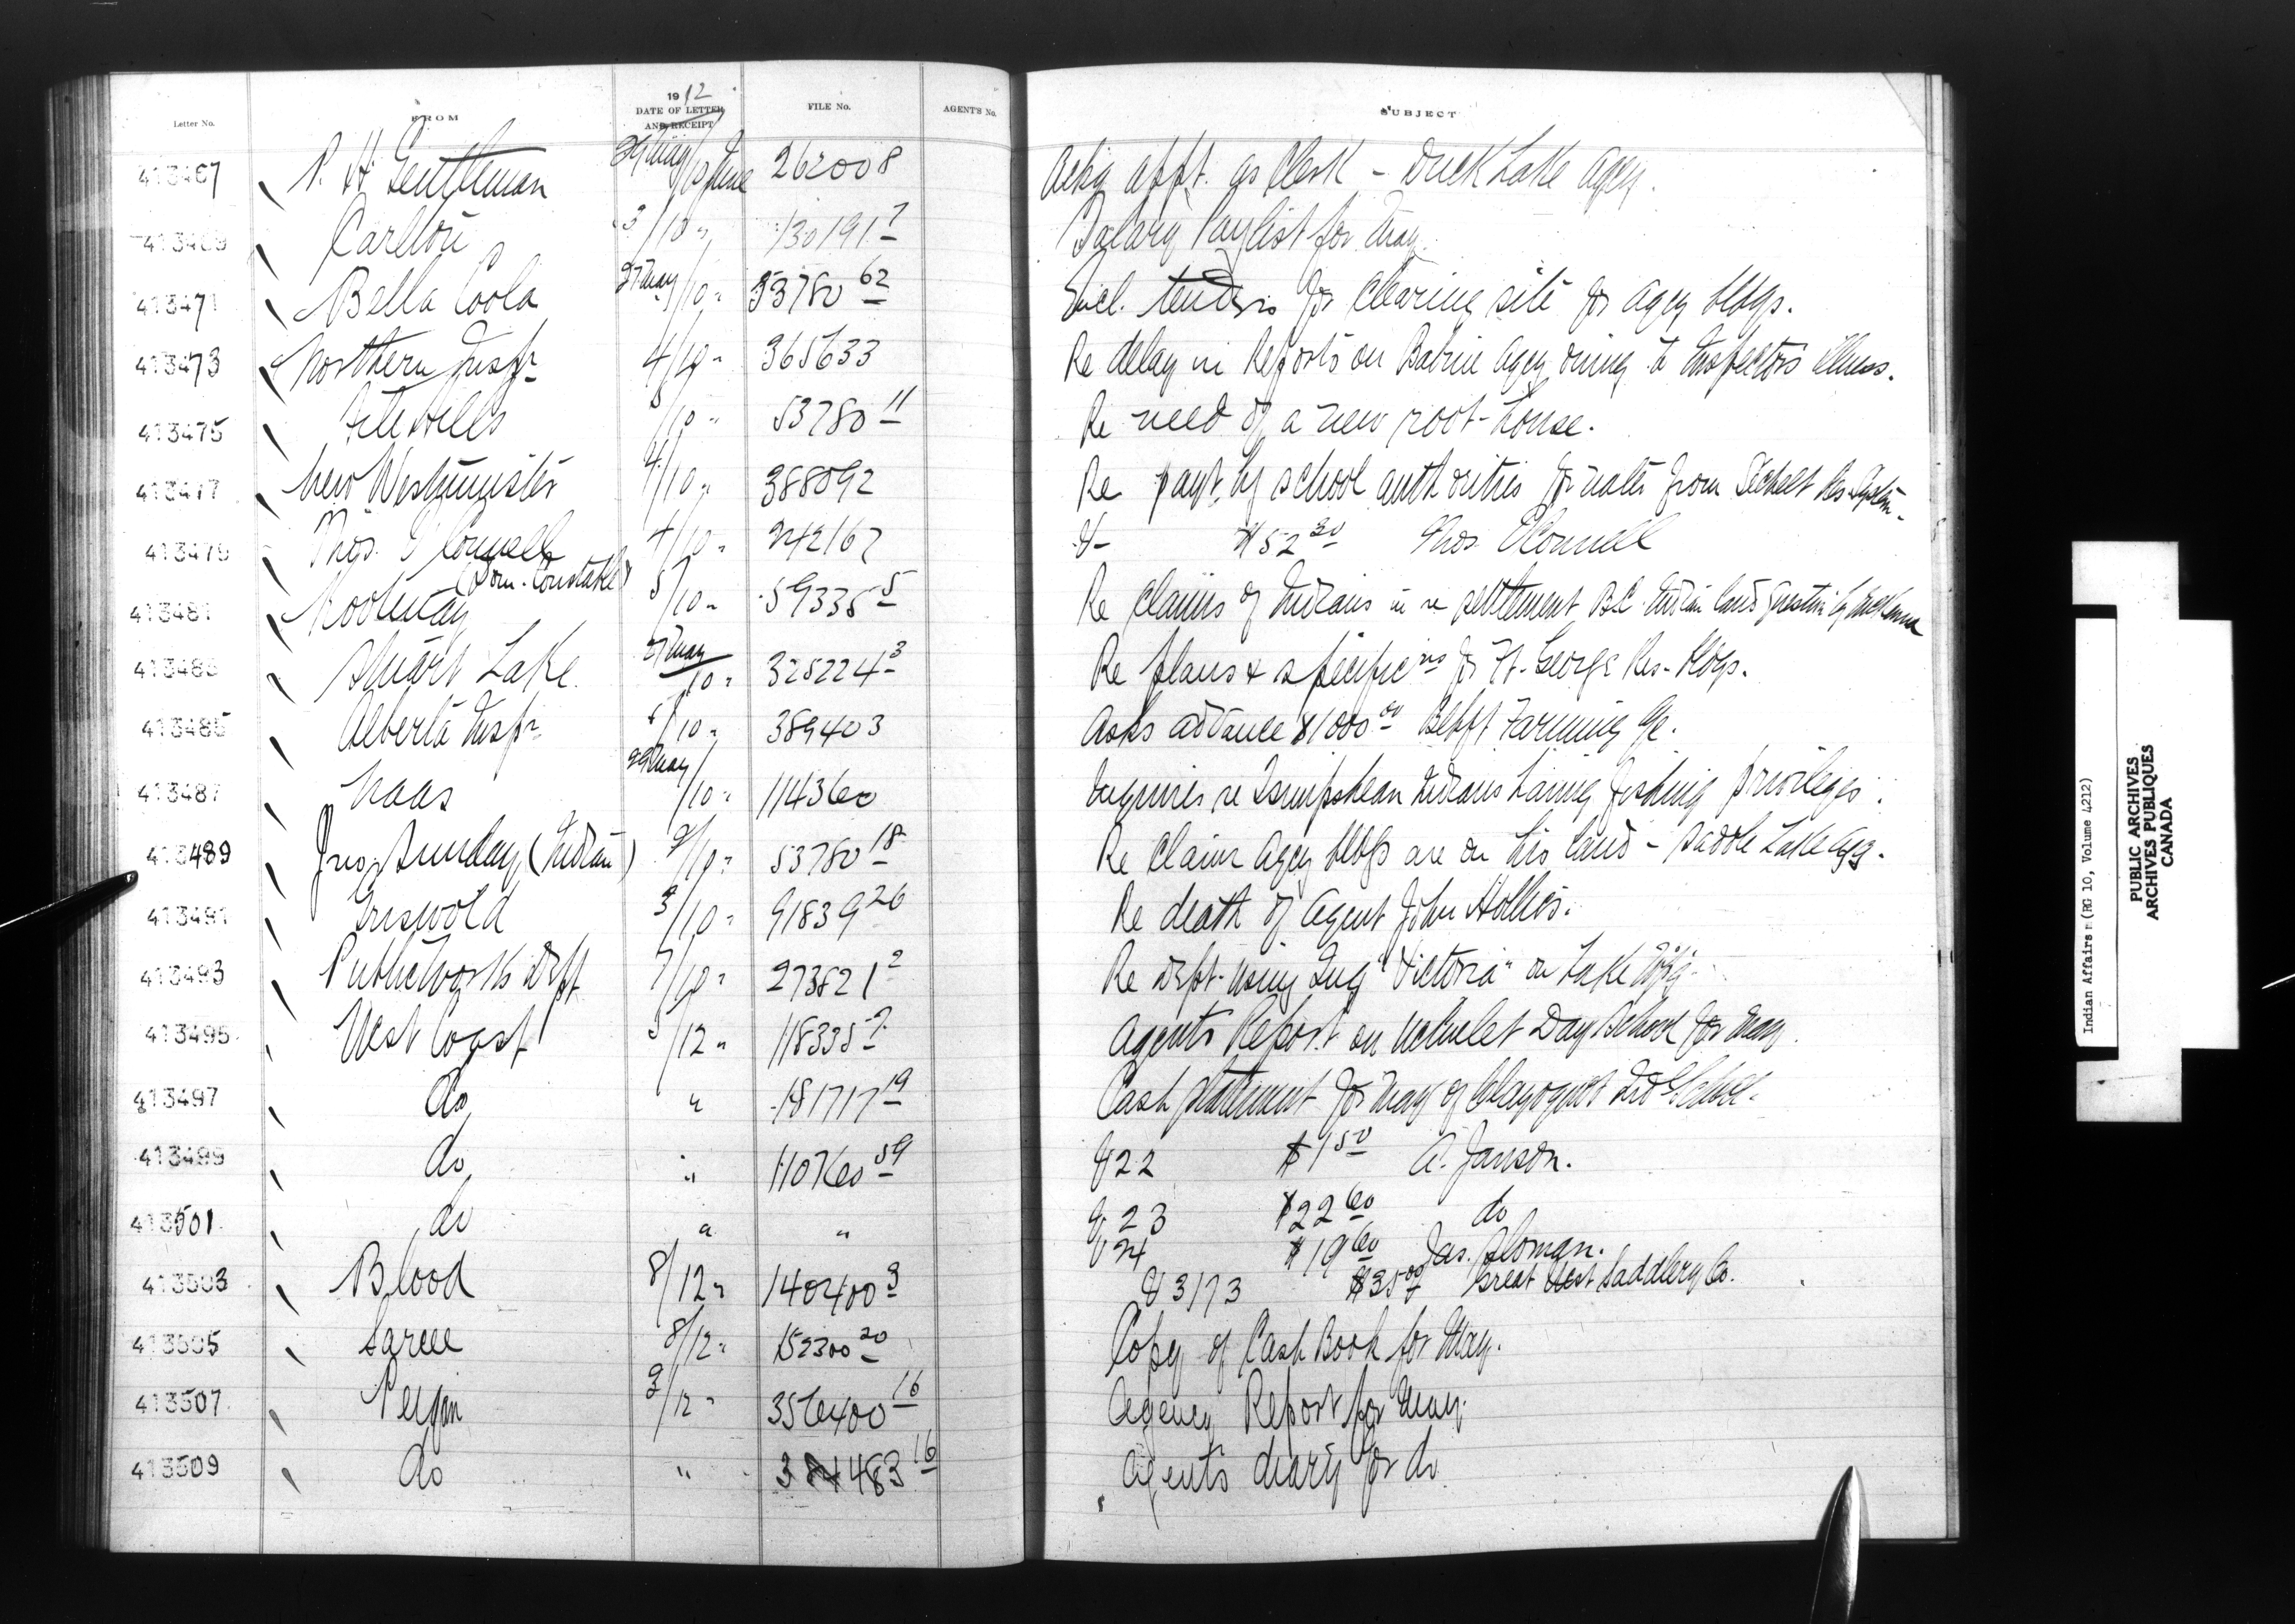 Letter No. FROM 1912 DATE OF LETTER AND RECEIPT FILE No. AGENT'S No. SUBJECT
413467 P. H. Gentleman 29 May/10 June 262008 Askg appt. as Clerk - Duck Lake Agcy.
413469 Carlton 3/10 " 130191 7 Salary Paylist for May.
413471 Bella Coola 27 May/10 " 53780 62 Encl. tenders for clearing site for Agcy bldgs.
413473 Northern Inspr 4/10 " 365633 Re delay in Reports on Babine Agcy owing to Inspectors illness.
413475 File Hills /10 " 53780 11 Re need of a new root-house.
413477 New Westminster 4/10 " 388092 Re payt. by school authorities for water from Sechelt Res. System.
413479 Thos. O'Connell 4/10 " 242167 V- $52 30 Thos. O'Connell
(Dom. Constable)
413481 Kootenay 5/10 " 59335 5 Re Claims of Indians in re settlement B.C. Indian land question by McKenna
413483 Stuart Lake 27 May/10 " 325224 3 Re plans & specificns for Ft. George Res. bldgs.
413485 Alberta Inspr 6/10 " 389403 Asks advance $1000 00 Blkft Farming a/c.
413487 Naas 29 May/10 " 114360 Inquires re Tsimpshean Indians having fishing privileges.
413489 Jno. Sunday (Indian) 2/10 " 53780 18 Re Claim Agcy bldgs are on his land - Saddle Lake Agy.
413491 Griswold 3/10 " 91839 26 Re death of Agent John Hollies.
413493 Public Works Dept 7/10 " 273521 2 Re Dept. using Tug "Victoria" on Lake
413495 West Coast 5/12 " 118335 2 Agents Report on Ucluelet Day School for May.
413497 do " 181717 19 Cash statement for May of Clayoquot Indl School.
413499 do " 110760 59 V 22 $1 50 A. Janson.
413501 do " " V 23 $22 60 do
V 24 $19 60 Jas. Sloman.
413503 Blood 8/12 " 140400 3 V 3173 $35 00 Great West Saddlery Co.
413505 Sarcee 8/12 " 152300 20 Copy of Cash Book for May.
413507 Peigan 3/12 " 356400 16 Agency Report for May.
413509 do " 483 16 Agent's diary for do
Indian Affairs (RG 10, Volume 4212)
PUBLIC ARCHIVES
ARCHIVES PUBLIQUES
CANADA